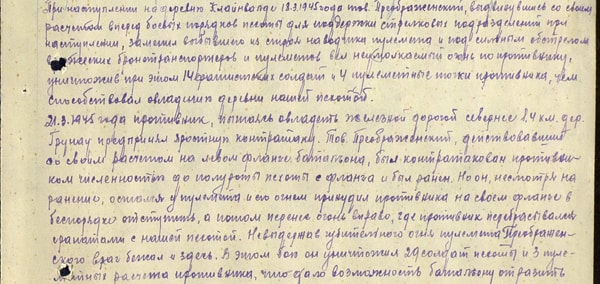 При наступлении на деревню Клайнвальде 18.3.1945 года тов. Преображенский, выдвинувшись со своим
расчетом вперед боевых порядков пехоты для поддержки стрелковых подразделений при
наступлении, заменил выбывшего из строя наводчика пулемета и под сильным обстрелом
вражеских бронетранспортеров и пулеметов вел неумолкаемый огонь по противнику,
уничтожив при этом 14 фашистских солдат и 4 пулеметные точки противника, чем
способствовал овладению деревни нашей пехотой.
21.3.1945 года противник, пытаясь овладеть железной дорогой севернее 2,4 км. дер.
Грунау предпринял яростную контратаку. Тов. Преображенский, действовавший
со своим расчетом на левом фланге батальона, был контратакован противни-
ком численностью до полуроты пехоты с фланга и был ранен. Но он, несмотря на
ранение, остался у пулемета и его огнем принудил противника на своем фланге в
беспорядке отступить, а потом перенес огонь вправо, где противник перебрасывался
гранатами с нашей пехотой. Невыдержав губительного огня пулемета Преображен-
ского враг бежал и здесь. В этом бою он уничтожил 29 солдат пехоты и 3 пуле-
метных расчета противника, что дало возможность батальону отразить